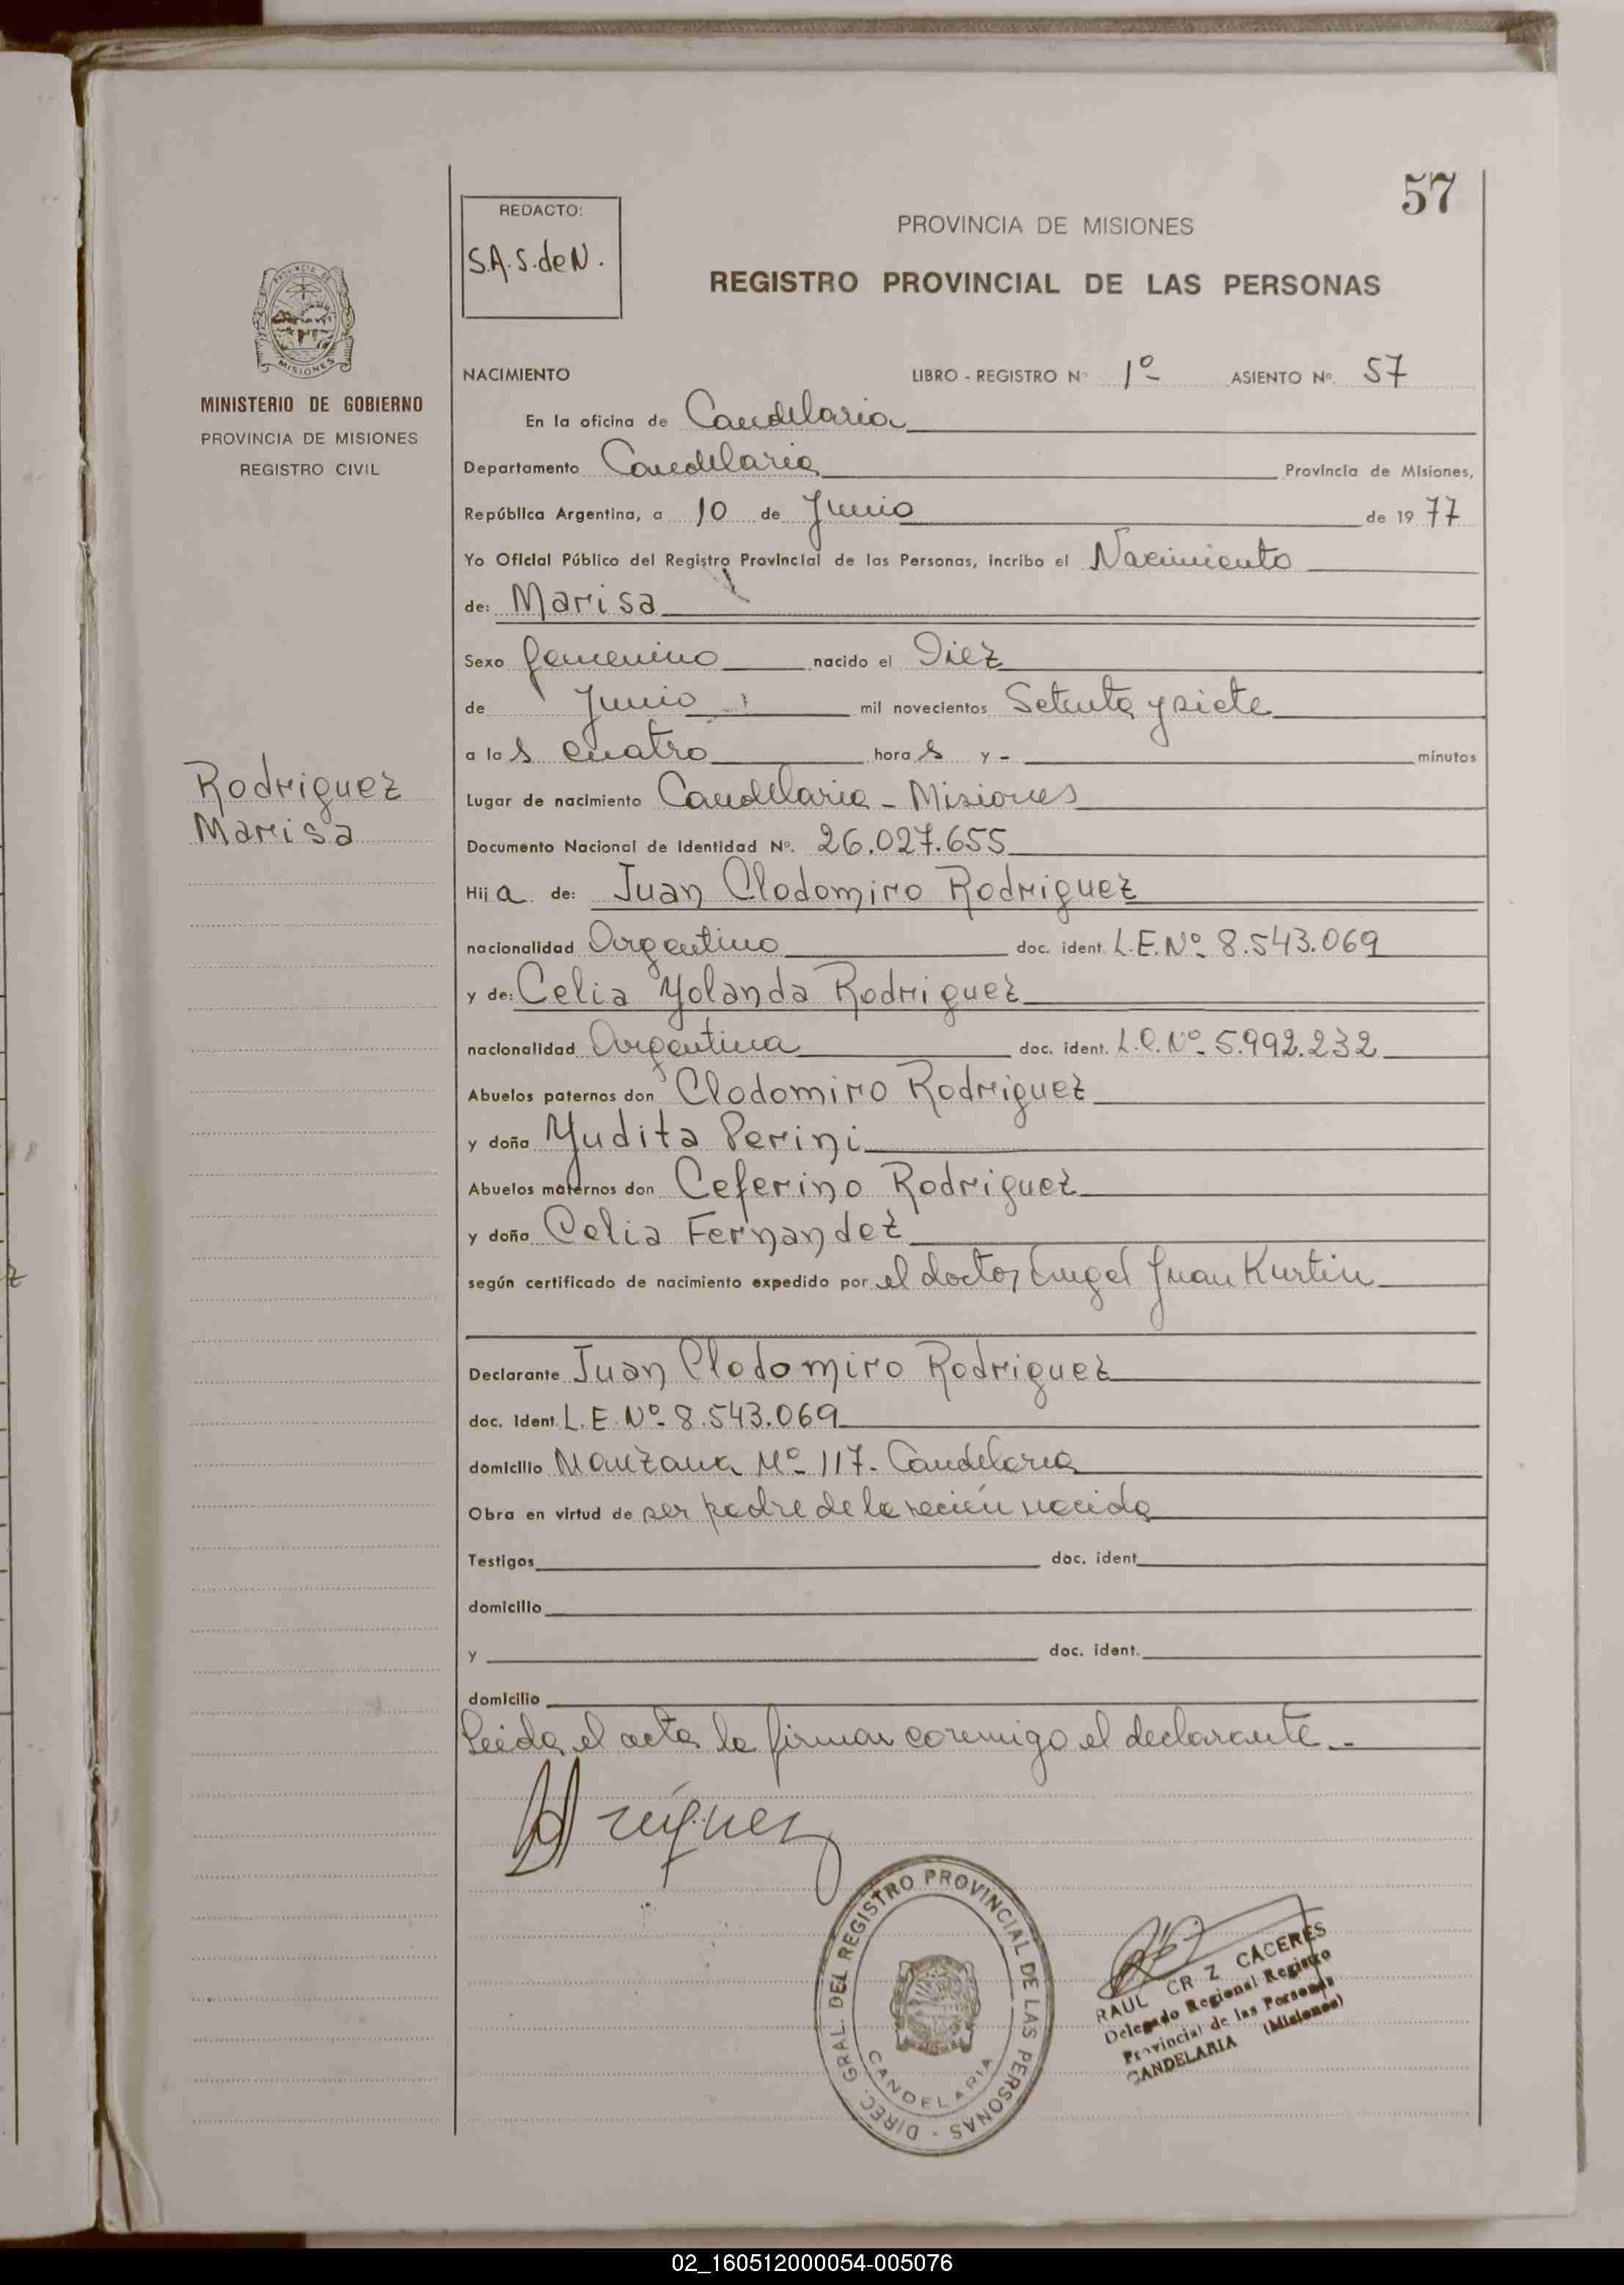 57
REDACTO:
S.A.S.deN.
PROVINCIA DE MISIONES
REGISTRO PROVINCIAL DE LAS PERSONAS
MISIONES
MINISTERIO DE GOBIERNO
PROVINCIA DE MISIONES
REGISTRO CIVIL
Rodriguez
Marisa
NACIMIENTO LIBRO - REGISTRO Nº 1º ASIENTO Nº 57
En la oficina de Candelaria
Departamento Candelaria Provincia de Misiones,
República Argentina, a 10 de Junio de 1977
Yo Oficial Público del Registro Provincial de las Personas, incribo el Nacimiento
de: Marisa
Sexo femenino nacido el Diez
de Junio mil novecientos Setenta y siete
a las cuatro horas y - minutos
Lugar de nacimiento Candelaria - Misiones
Documento Nacional de Identidad Nº. 26.027.655
Hija de: Juan Clodomiro Rodriguez
nacionalidad Argentino doc. ident. L.E.Nº 8.543.069
y de: Celia Yolanda Rodriguez
nacionalidad Argentina doc. ident. L.C.Nº 5.992.232
Abuelos paternos don Clodomiro Rodriguez
y doña Yudita Perini
Abuelos maternos don Ceferino Rodriguez
y doña Celia Fernandez
según certificado de nacimiento expedido por el doctor Angel Juan Kurtin
Declarante Juan Clodomiro Rodriguez
doc. Ident. L.E. Nº 8.543.069
domicilio Manzana Nº 117- Candelaria
Obra en virtud de ser padre de la recién nacida
Testigos doc. ident
domicilio
y doc. ident.
domicilio
Leida el acta la firman conmigo el declarante.-
DIREC. GRAL. DEL REGISTRO PROVINCIAL DE LAS PERSONAS -
CANDELARIA
RAUL CR Z CACERES
Delegado Regional Registro
Provincial de las Personas
CANDELARIA (Misiones)
02_160512000054-005076